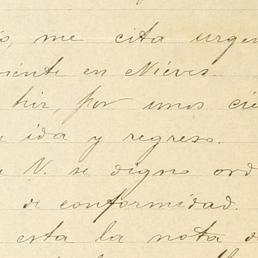 s, me cita urge
niente en Nieves.
hir, por unos ci
ida y regreso.
V. se digne ord
de conformidad.
esta la nota d